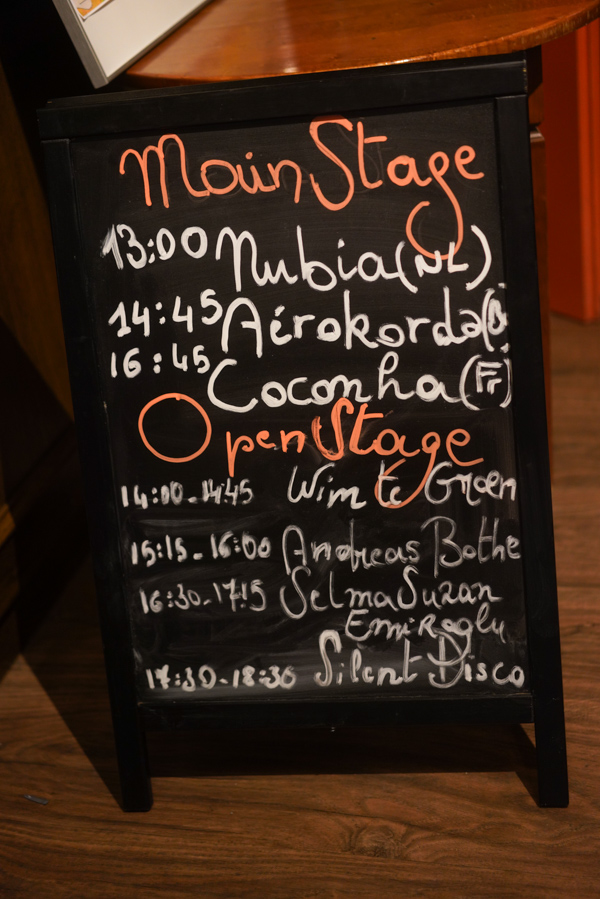 Main Stage
13:00 Nubia (NL)
14:45 Airokorda
16:45
Coconha (Fr)
Open Stage
14:00-14:45 Wim te Groen
15:15-16:00 Andreas Bothe
16:30-17:15 Selma Suzan
Emiroglu
17:30-18:30 Silent Disco